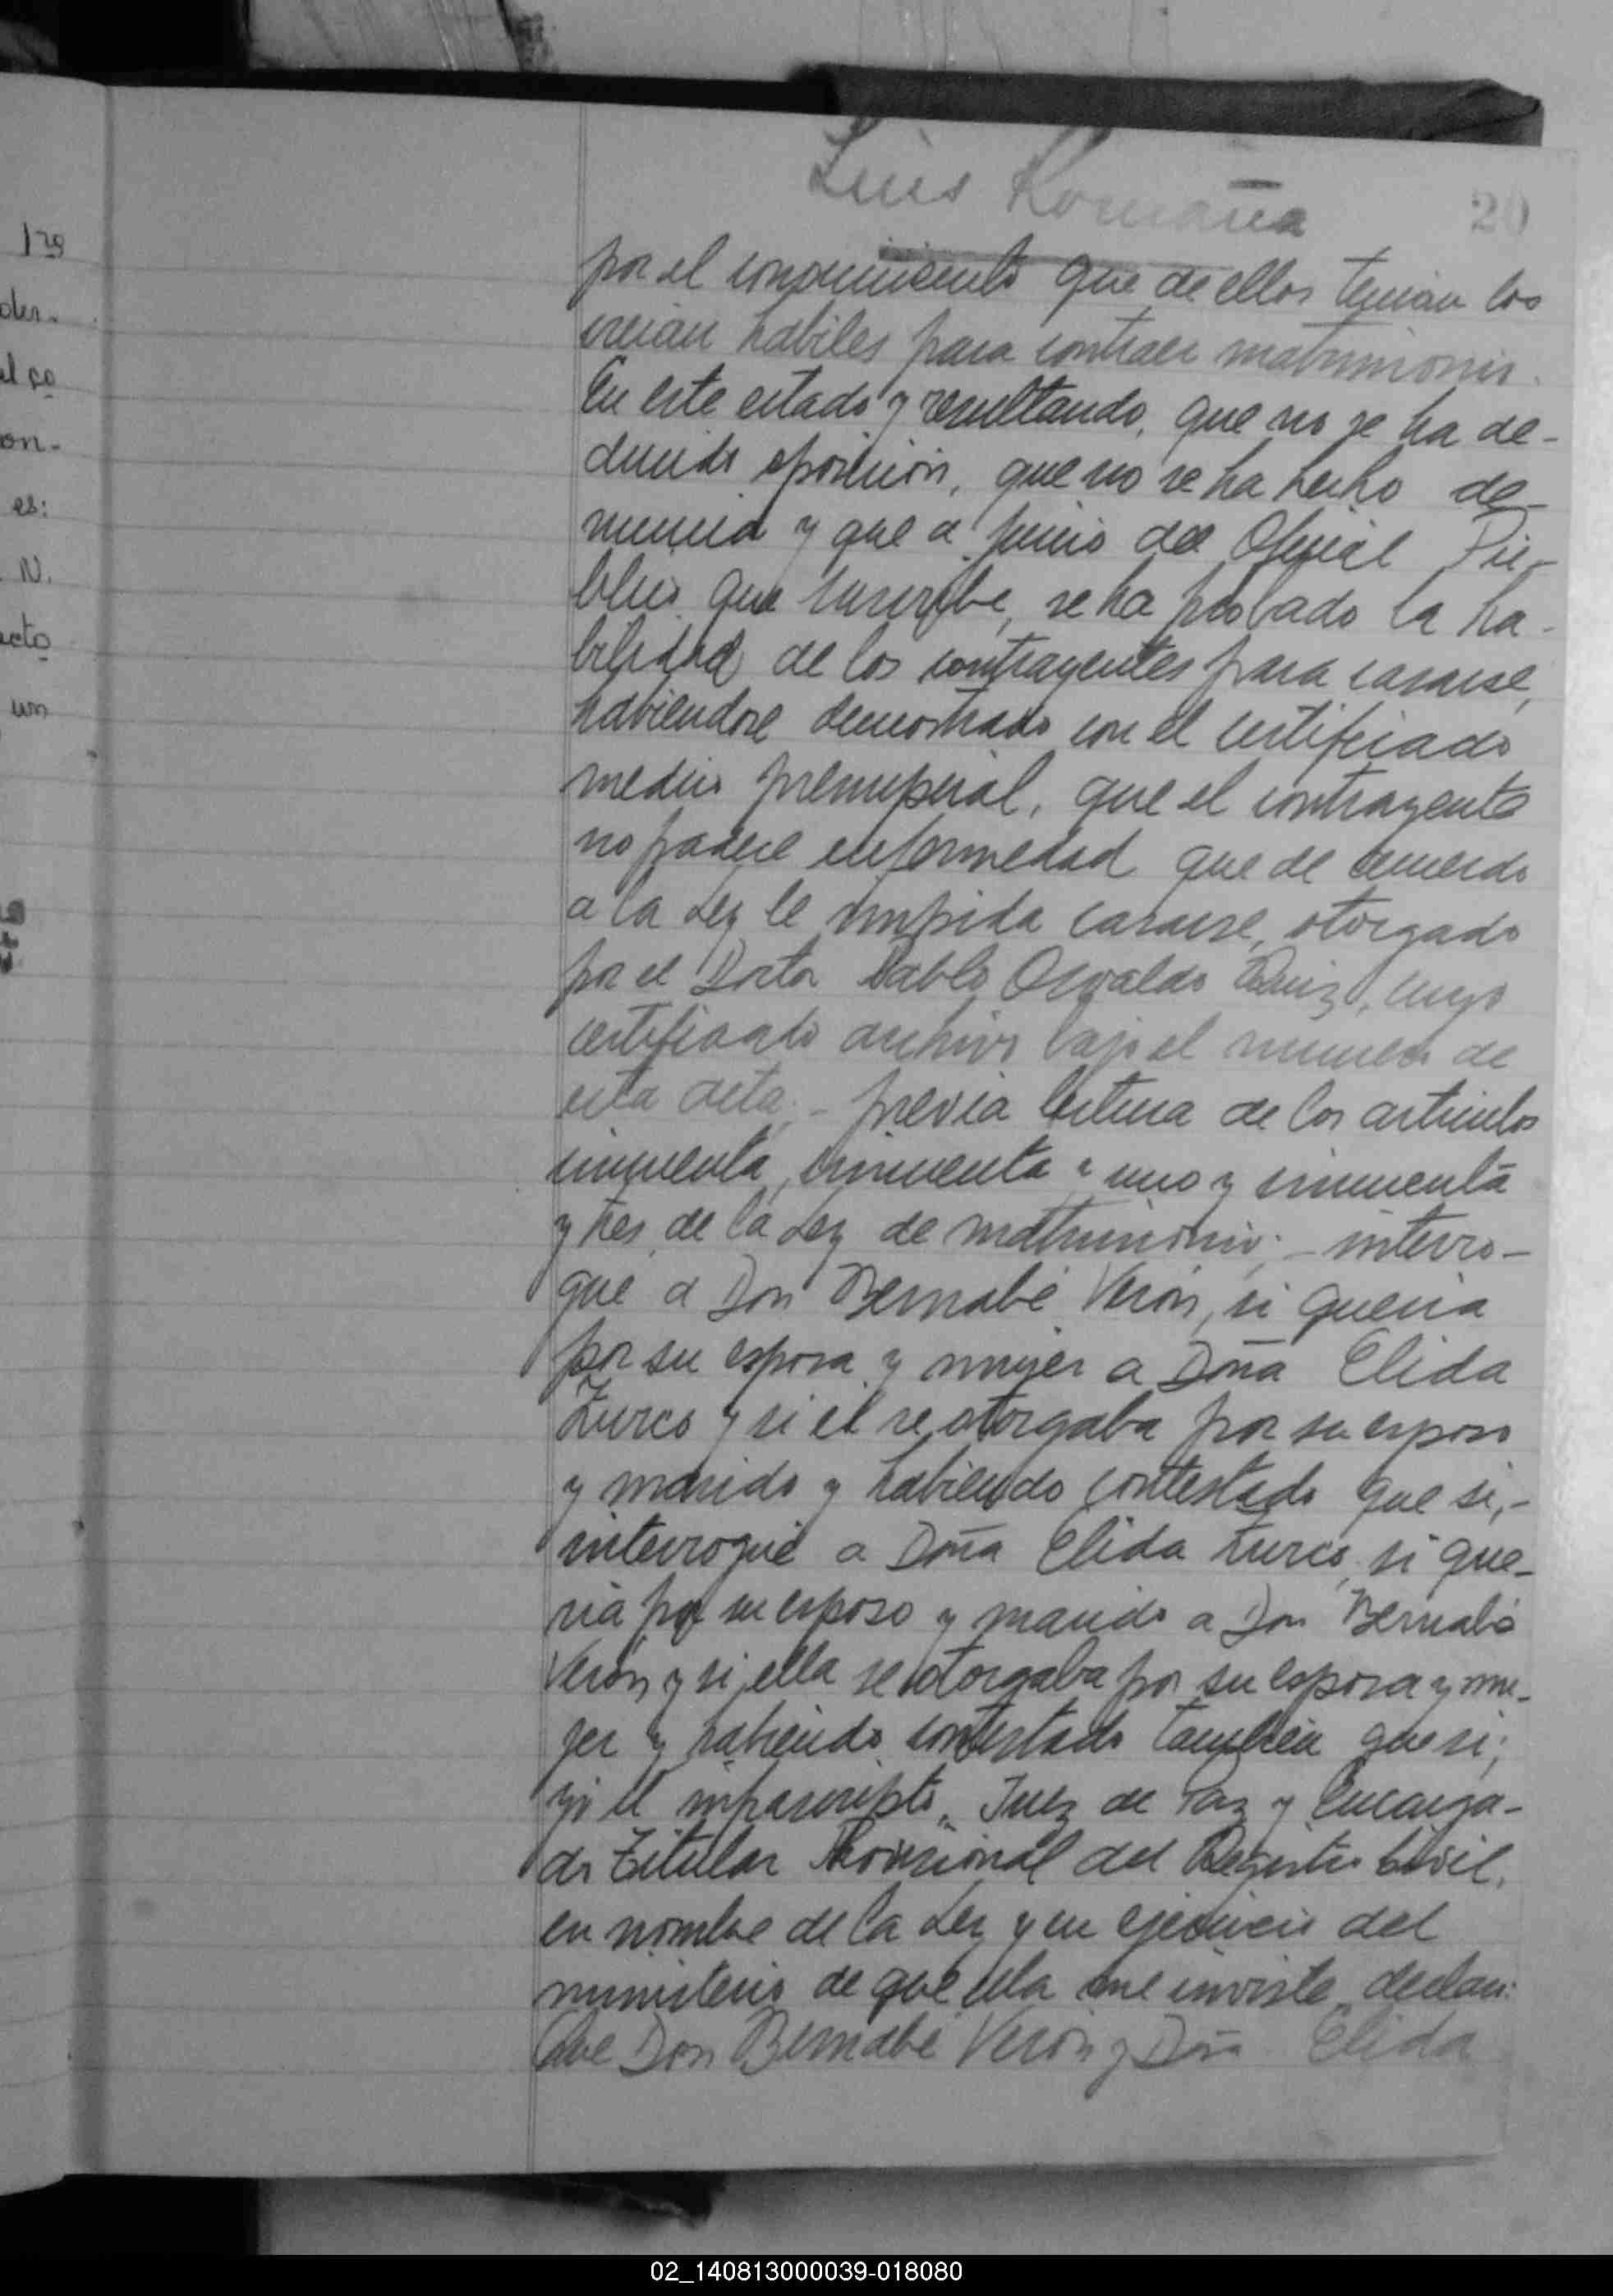 Luis Romaña
20
por el conocimiento que de ellos tenian los
creian habiles para contraer matrimonio.
En este estado y resultando, que no se ha de-
ducido oposicion, que no se ha hecho de-
nuncia y que a juicio del Oficial Pú-
blico que suscribe, se ha probado la ha-
bilidad de los contrayentes para casarse,
habiendose demostrado con el certificado
medico prenupcial, que el contrayente
no padece enfermedad que de acuerdo
a la Ley le impida casarse, otorgado
por el Doctor Pablo Osvaldo Ruiz, cuyo
certificado archivo bajo el numero de
esta acta; - previa lectura de los articulos
cincuenta, cincuenta y uno y cincuenta
y tres de la Ley de matrimonio; - interro-
gue a Don Bernabé Verón, si queria
por su esposa y mujer a Doña Elida
Zurco y si el se otorgaba por su esposo
y marido y habiendo contestado que si, -
interrogué a Doña Elida Zurco, si que-
ria por su esposo y marido a Don Bernabé
Verón y si ella se otorgaba por su esposa y mu-
jer y habiendo contestado tambien que si;
yo el infrascripto, Juez de Paz y Encarga-
do Titular Provisional del Registro Civil,
en nombre de la Ley y en ejercicio del
ministerio de que ella me inviste, declaro:
Que Don Bernabé Verón y Dña Elida
1 29
der.
el ço
on-
es:
N.
acto
un
02_140813000039-018080